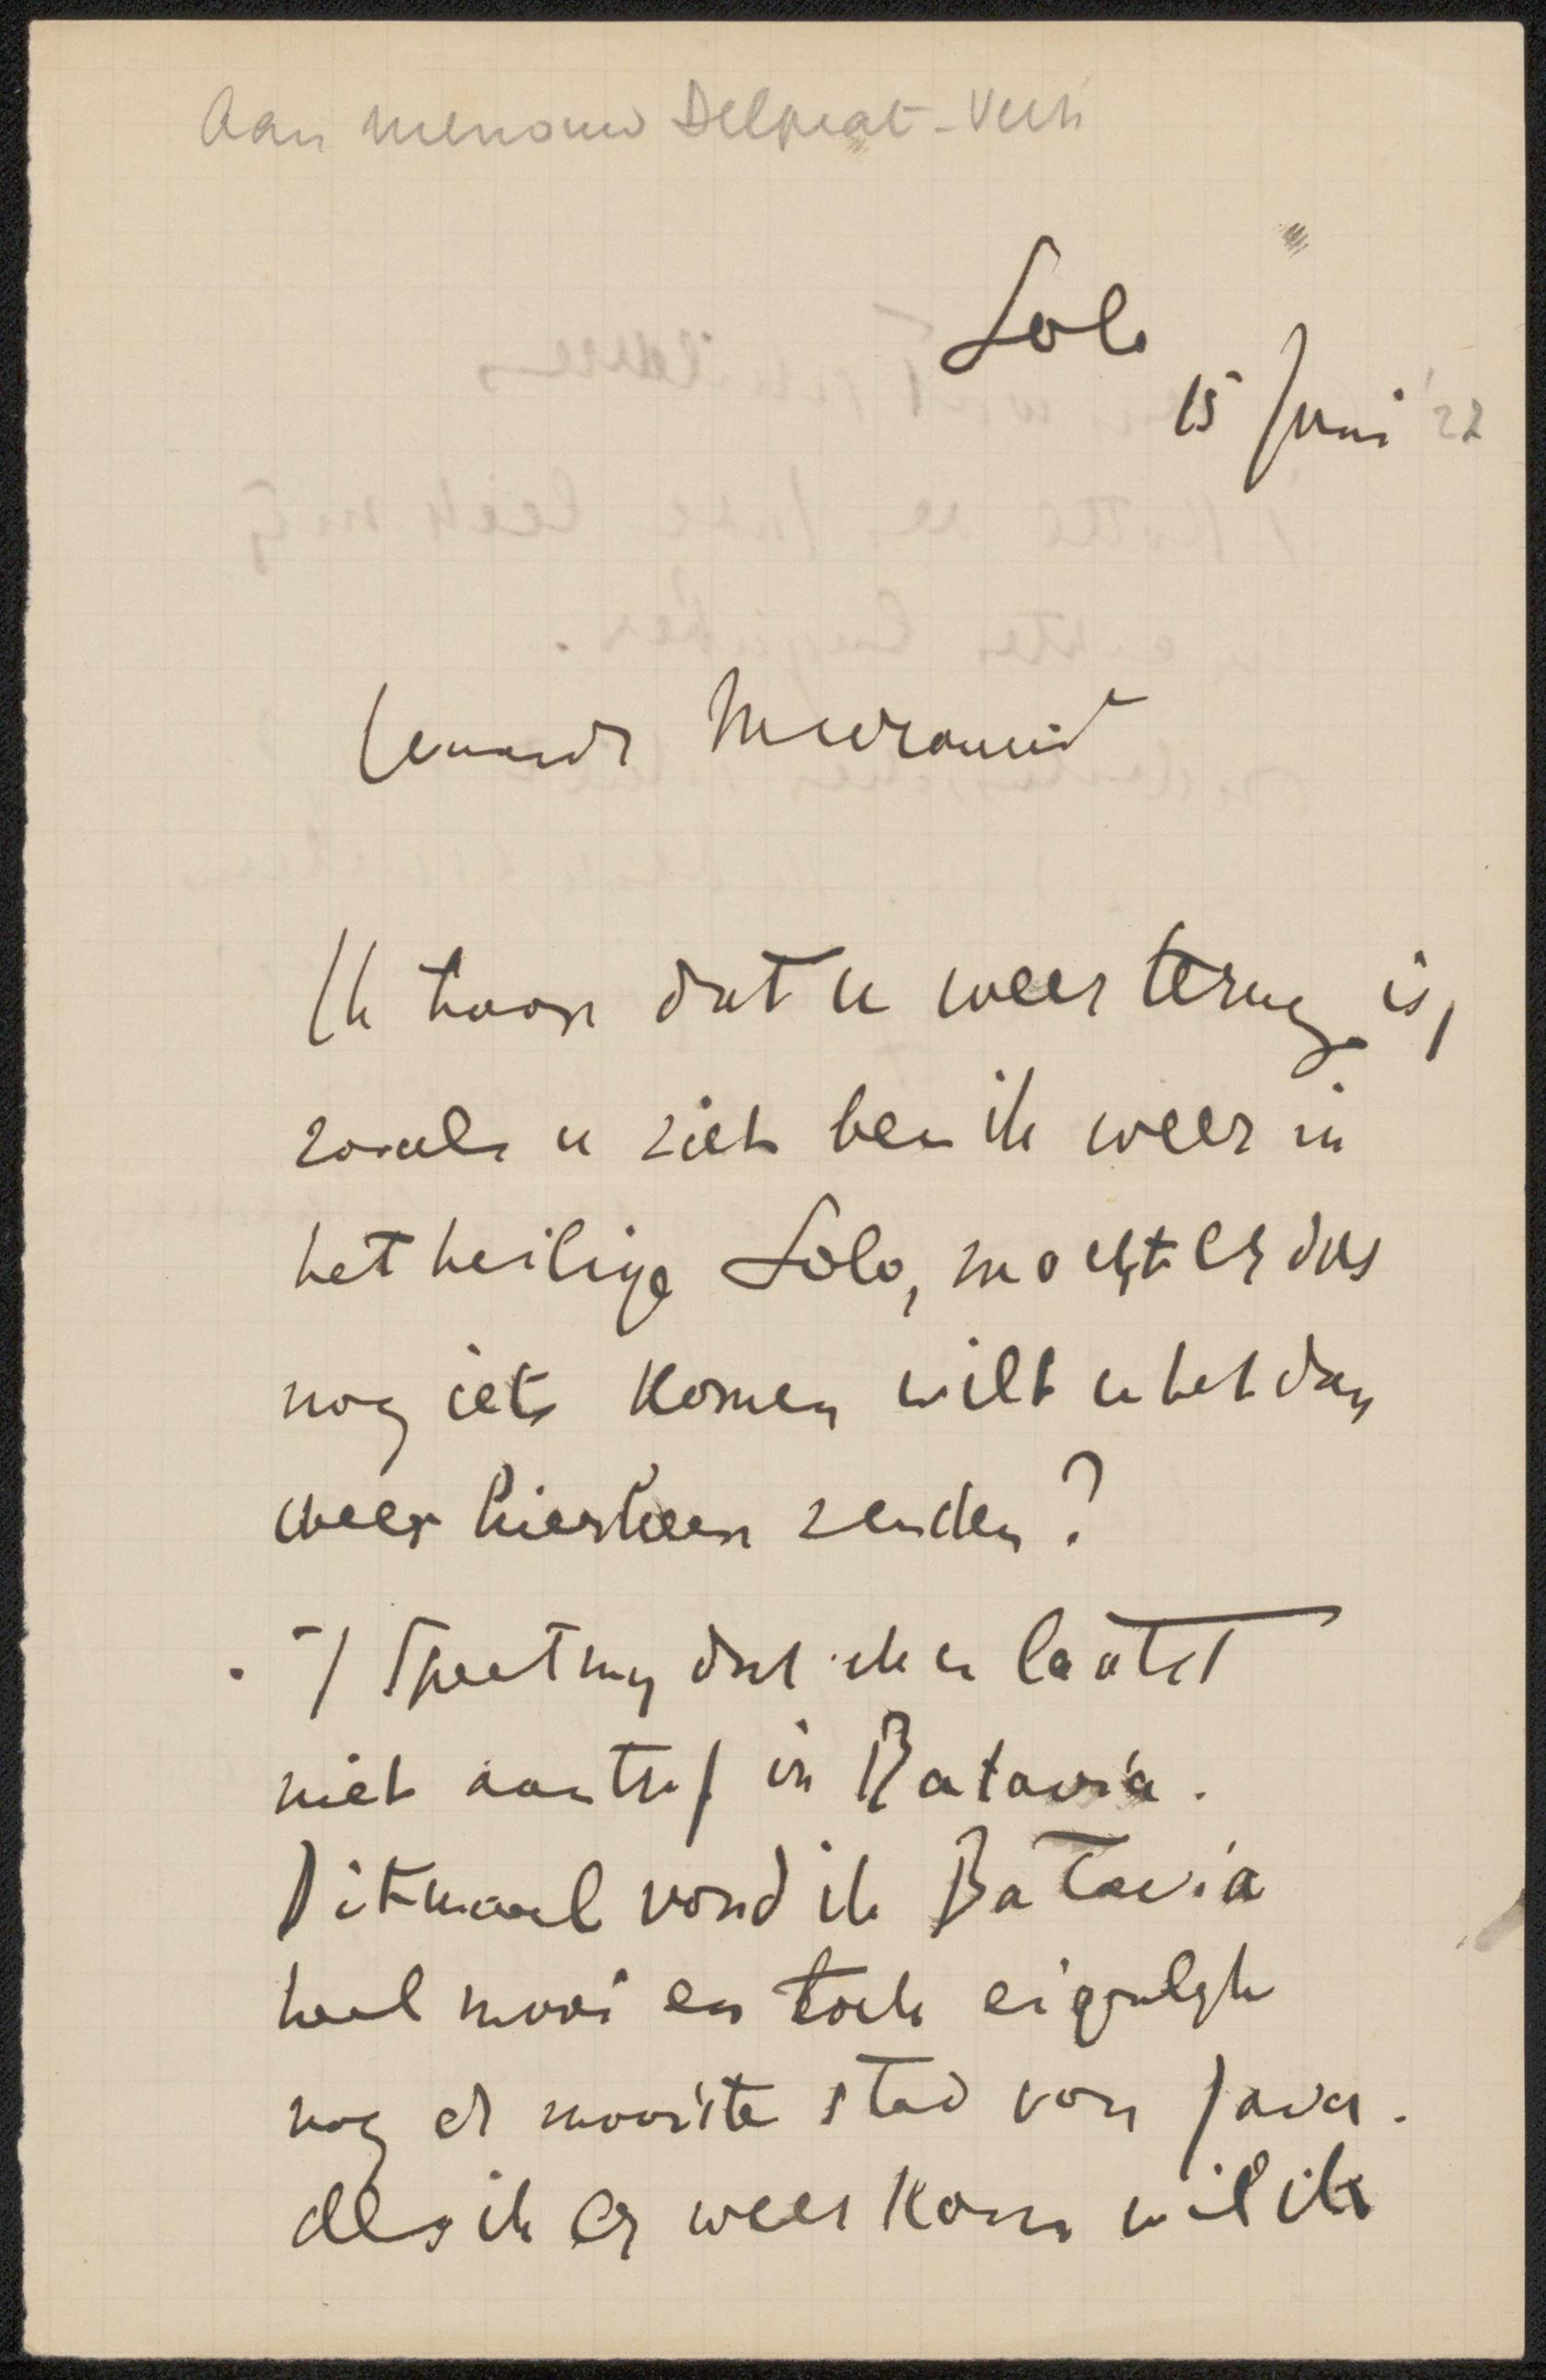 Aan mevrouw Delprat-Veth
Solo
15 Juni '22
Geachte Mevrouw
Ik hoor dat u weer terug is,
zooals u ziet ben ik weer in
het heilige Solo, mocht er dus
nog iets komen wilt u het dan
weer hierheen zenden?
't Speet mij dat ik u laatst
niet aantrof in Batavia.
Ditmaal vond ik Batavia
heel mooi en toch eigenlijk
nog de mooiste stad van Java.
als ik er weer kom wil ik